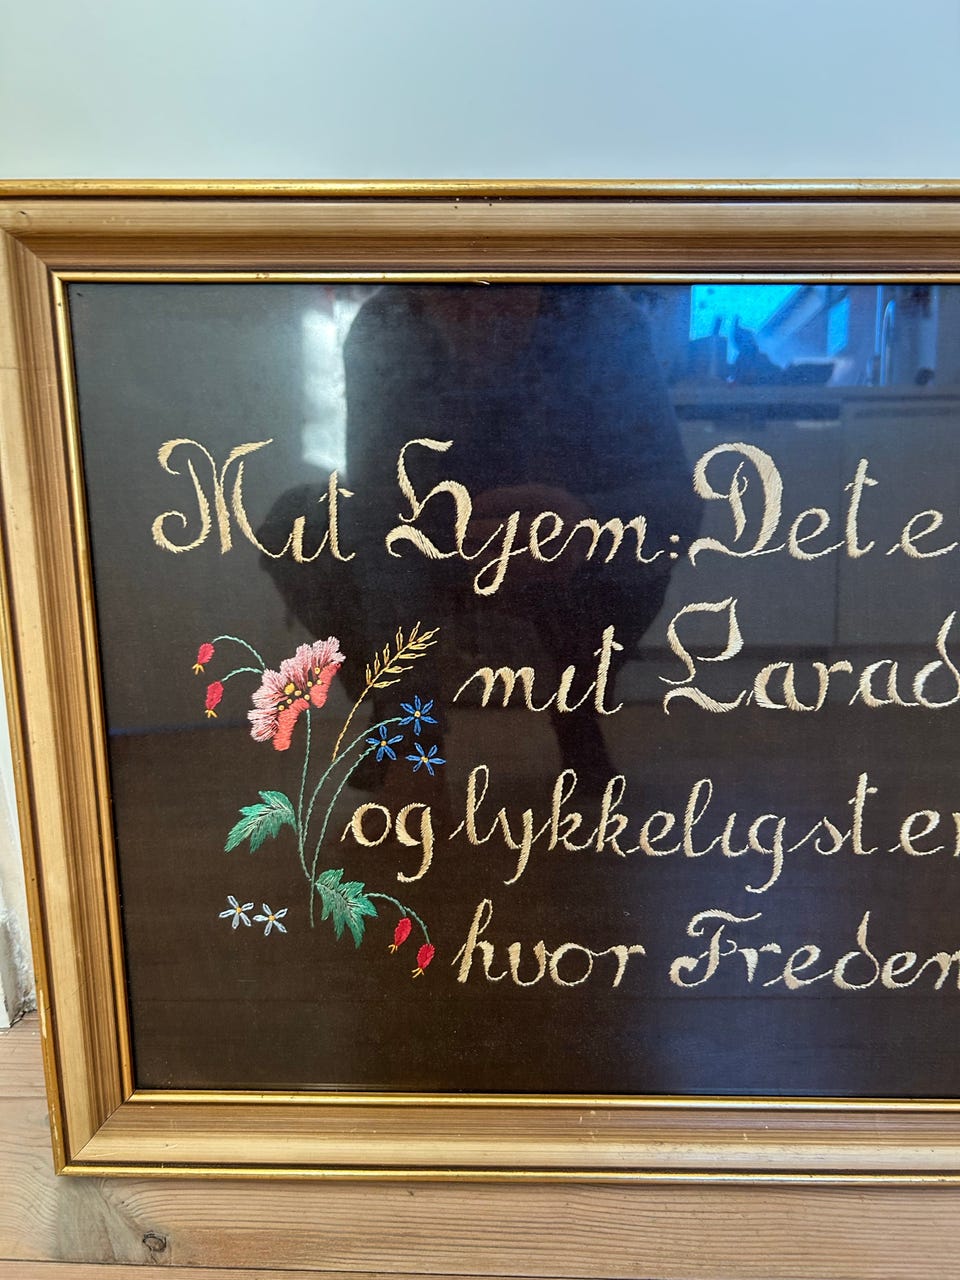 Mit Hjem: Det e
mit Parad
og lykkeligst er
hvor Freden